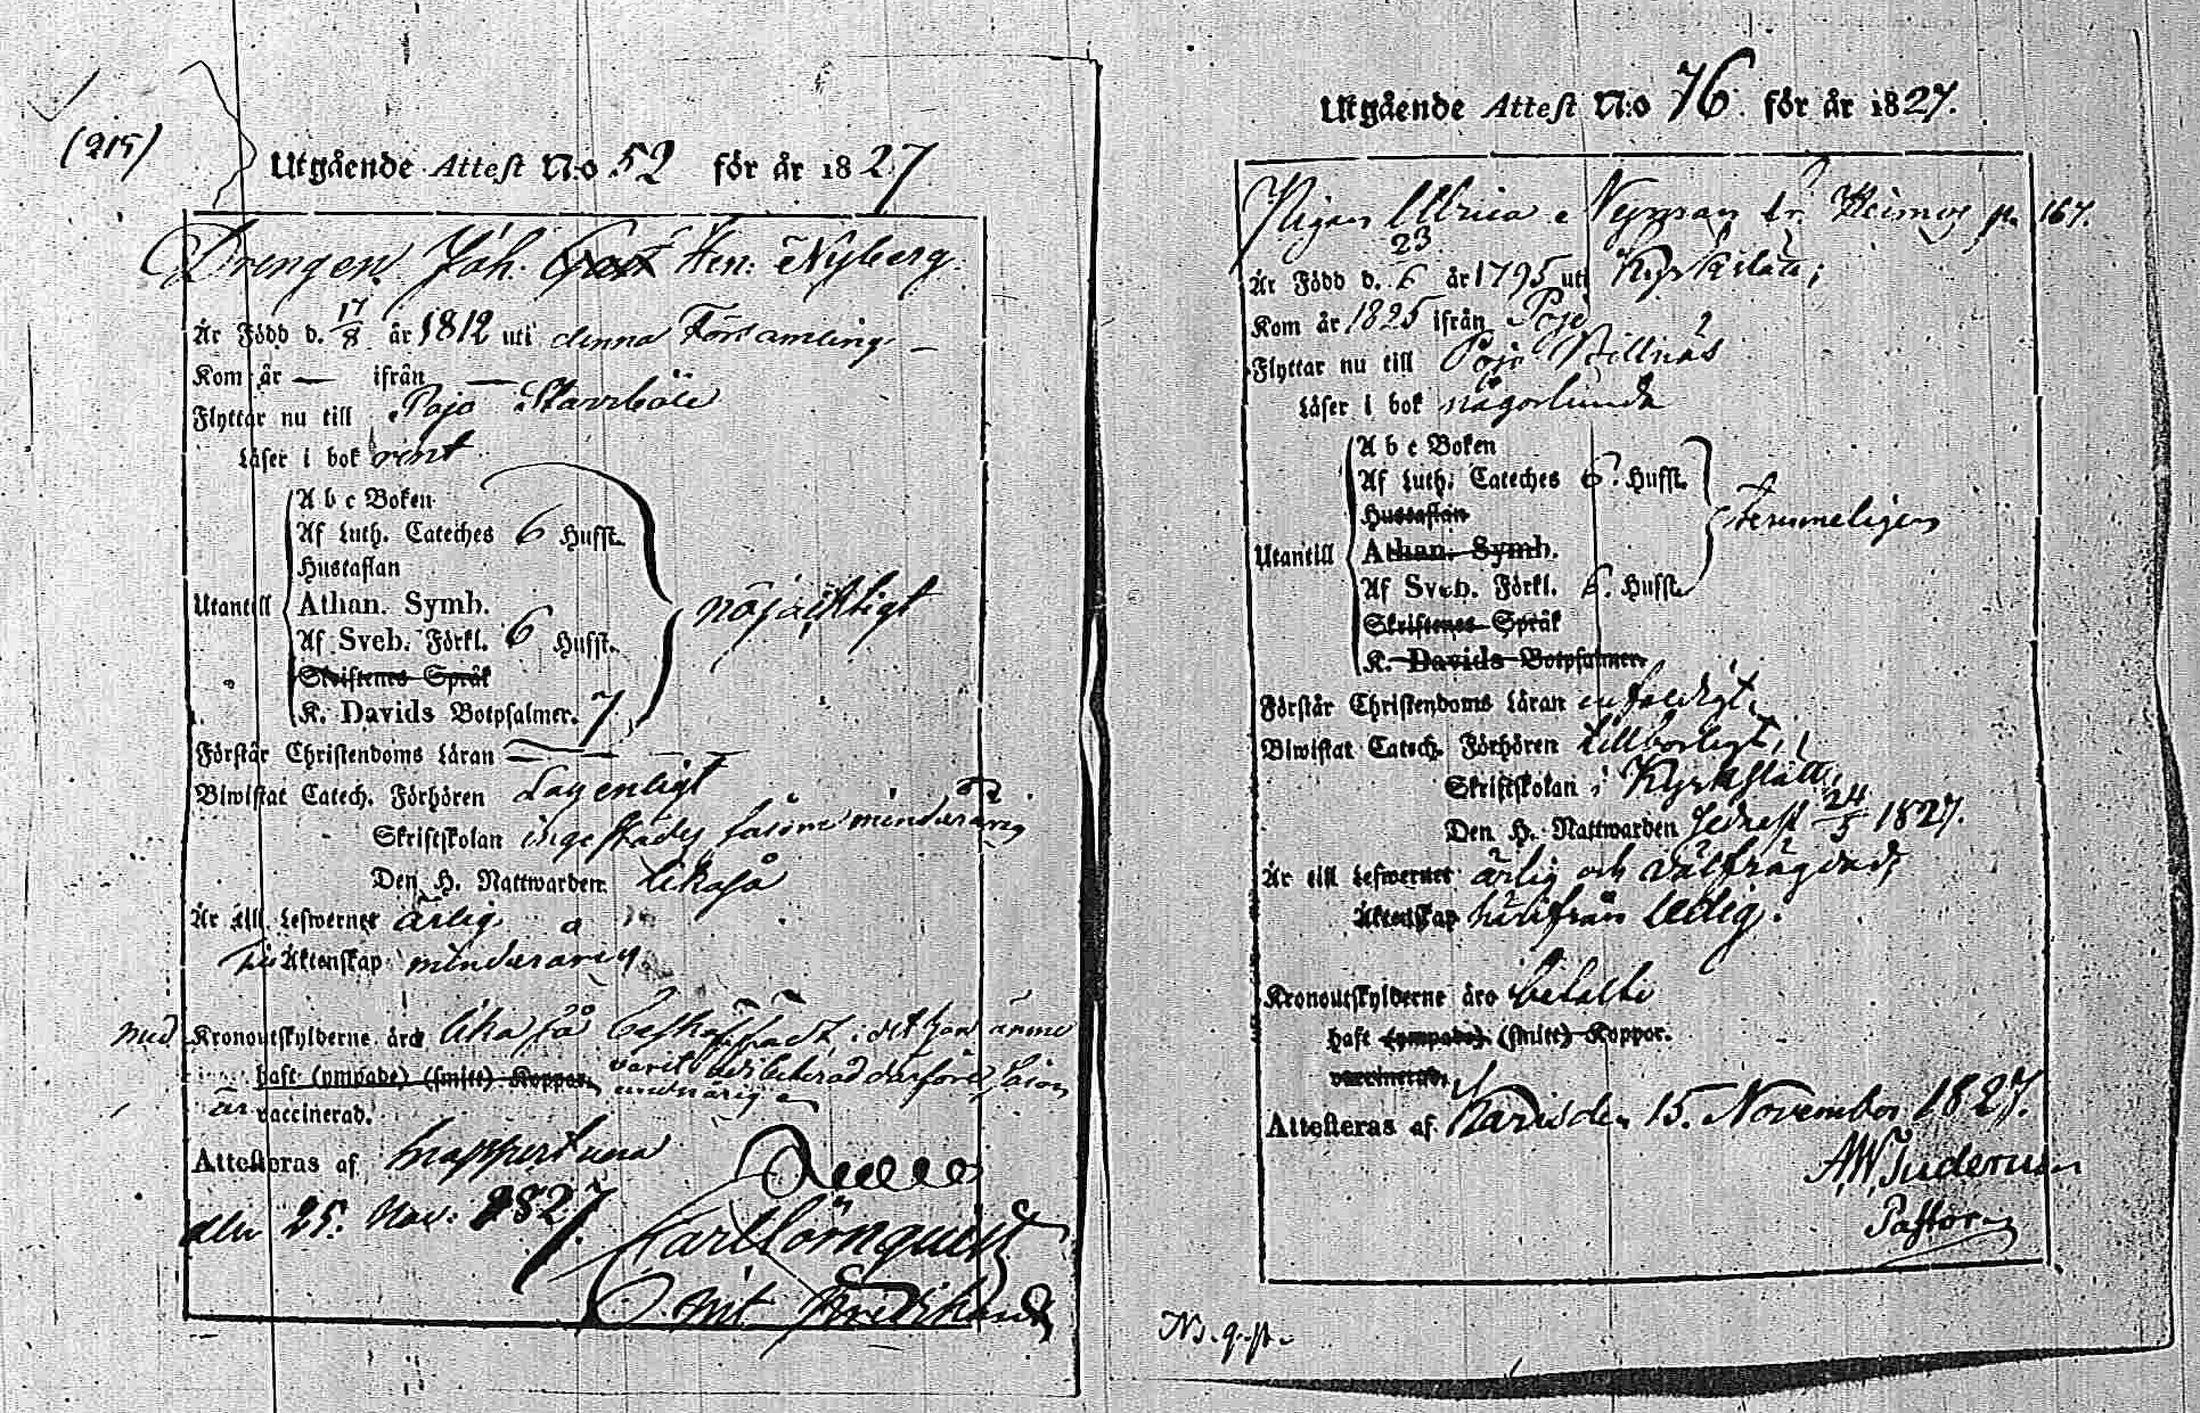 (215)
Utgående Attest N:o 52 för år 1827
Drengen Joh. Hen: Nyberg.
Är Född d. 17/8 år 1812 uti denna Församling
Kom år — ifrån —
Flyttar nu till Pojo Starrböle
Läser i bok rent
A b c Boken
Af Luth. Cateches 6 Hufst.
Hustaflan
Utantill Athan. Symb. nöjaktligt
Af Sveb. Förkl. 6 Hufst.
Skriftenes Språk
K. Davids Botpsalmer. 7
Förstår Christendoms Läran —
Biwistat Catech. Förhören Lagenligt
Skriftskolan ingestädes såsom minderårig
Den H. Nattwarden likaså
Är till Lefwernet ärlig
till Äktenskap minderårig
med Kronoutskylderne äro lika så beskaffadt, det han ännu
haft (ympade) (smitt) Koppor. varit debiterad därföre, såsom
minderårig
är vaccinerad.
Attesteras af Snappertuna
den 25. Nov. 1827.
Carl Cörnquist
Utgående Attest N:o 76 för år 1827.
Pigan Ulrica Nyman fr. p. 167.
Är Född d. 23/6 år 1795 uti Kyrkslätt;
Kom år 1825 ifrån Pojo
Flyttar nu till Pojo Billnäs
Läser i bok någorlunda
A b c Boken
Af Luth. Cateches 6. Hufst.
Hustaflan
Utantill Athan. Symb. temmeligen
Af Sveb. Förkl. 6. Hufst.
Skriftenes Språk
K. Davids Botpsalmer.
Förstår Christendoms Läran enfaldigt,
Biwistat Catech. Förhören tillbörligt,
Skriftskolan i Kyrkslätt,
Den H. Nattwarden sednast 24/5 1827.
Är till Lefwernet ärlig och välfrägdad,
Äktenskap härifrån ledig.
Kronoutskylderne äro betalte
haft (ympade) (smitt) Koppor.
vaccinerad.
Attesteras af Karis den 15. November 1827.
Pastor